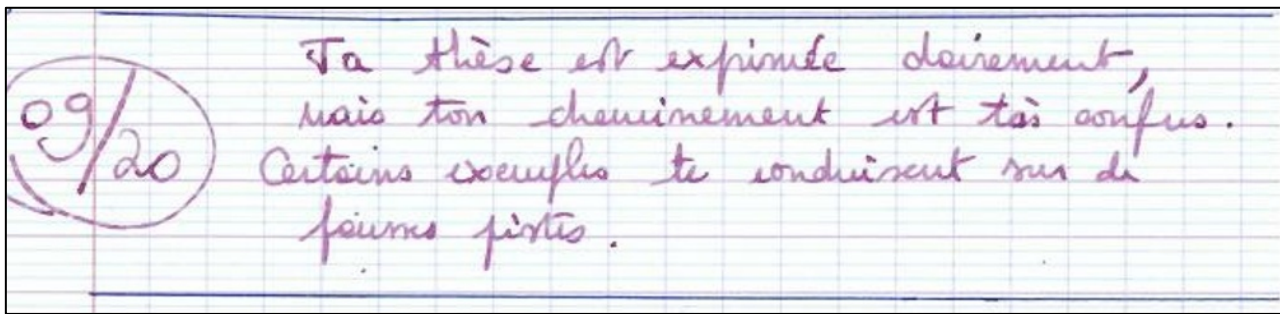 Ta thèse est exprimée clairement,
mais ton cheminement est très confus.
09/20
Certains exemples te conduisent sur de
fausses pistes.